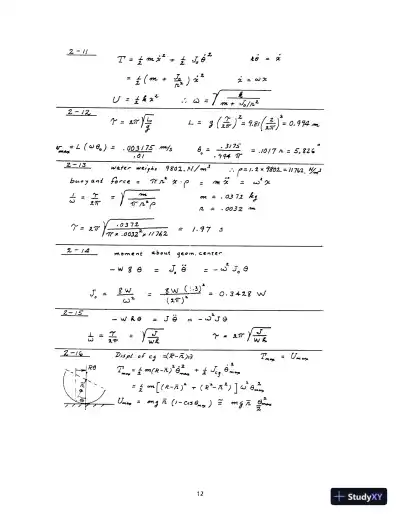 2-11
T = ½ m ẋ² + ½ J₀ θ̇² rθ̇ = ẋ
= ½ (m + J₀/r²) ẋ² ẋ = ωx
U = ½ k x² ∴ ω = √(k / (m + J₀/r²))
2-12
τ = 2π √(L/g) L = g (τ/2π)² = 9.81 (2/2π)² = 0.994 m
= L (ωθ₀) = .003175 / .01 m/s θ₀ = .3175 / .994 π = .1017 r = 5.826°
2-13 water weighs 9802. N/m³ ∴ ρ = 1.2 × 9802 = 11762. N/m³
buoyant force = π r² x · ρ = m ẍ = ω² x
1/ω = τ/2π = √(m / π r² ρ) m = .0372 kg
r = .0032 m
τ = 2π √(.0372 / π × .0032² × 11762) = 1.97 s
2-14 moment about geom. center
- W 8 θ = J₀ θ̈ = - ω² J₀ θ
J₀ = 8W / ω² = 8W (.3)² / (2π)² = 0.3428 W
2-15 - W h θ = J θ̈ = - ω² J θ
1/ω = τ/2π = √(J / Wh) τ = 2π √(J / Wh)
2-16 Displ. of cg = (R-r̄)θ Tmax = Umax
Rθ Tmax = ½ m(R-r̄)² θ̇²max + ½ Jcg θ̇²max
= ½ m [(R-r̄)² + (R²-r̄²)] ω² θ²max
Umax = mg r̄ (1-cosθmax) ≅ mg r̄ θ²max / 2
12
StudyXY